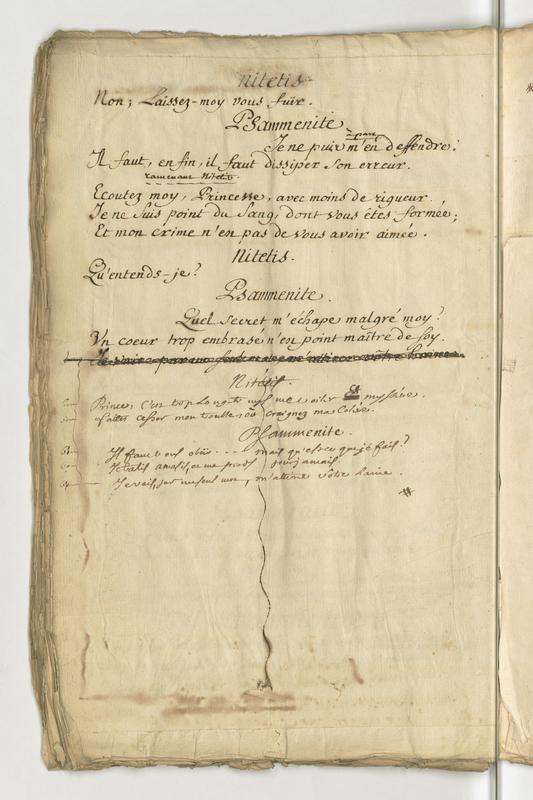 Nitetis
Non; Laissez-moy vous fuir.
Psammenite
à part
Je ne puis m'en deffendre:
Il faut, enfin, il faut dissiper son erreur.
ramenant Nitetis
Ecoutez moy, Princesse, avec moins de rigueur.
Je ne suis point du Sang, dont vous êtes formée;
Et mon crime n'en pas de vous avoir aimée.
Nitetis.
Qu'entends-je?
Psammenite.
Quel secret m'échape malgré moy?
Vn coeur trop embrasé n'en point maître de soy.
Nitétis.
Prince, c'en trop Longtems me voiler ce mystére.
Faites cesser mon trouble, où craignez ma Colére.
Psammenite.
Il faut vous obéir... mais qu'est-ce que je fais?
Je trahis amasis, et me perds pour jamais
Je vais, par un seul mot, m'attirer vôtre haine.